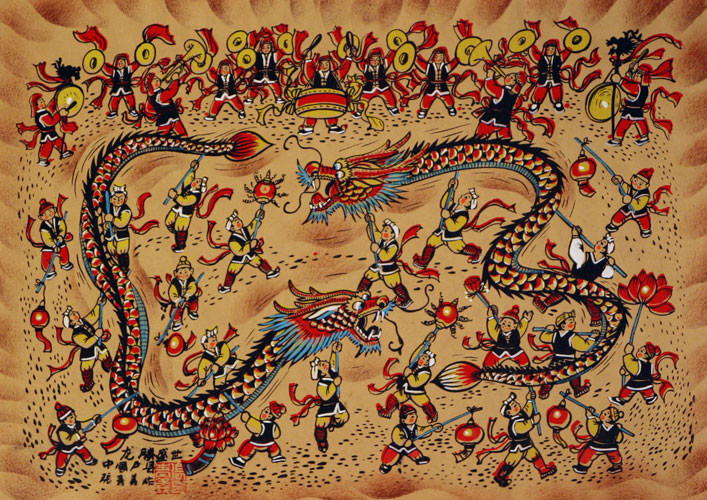 龙腾盛世
中国户县
张青义作